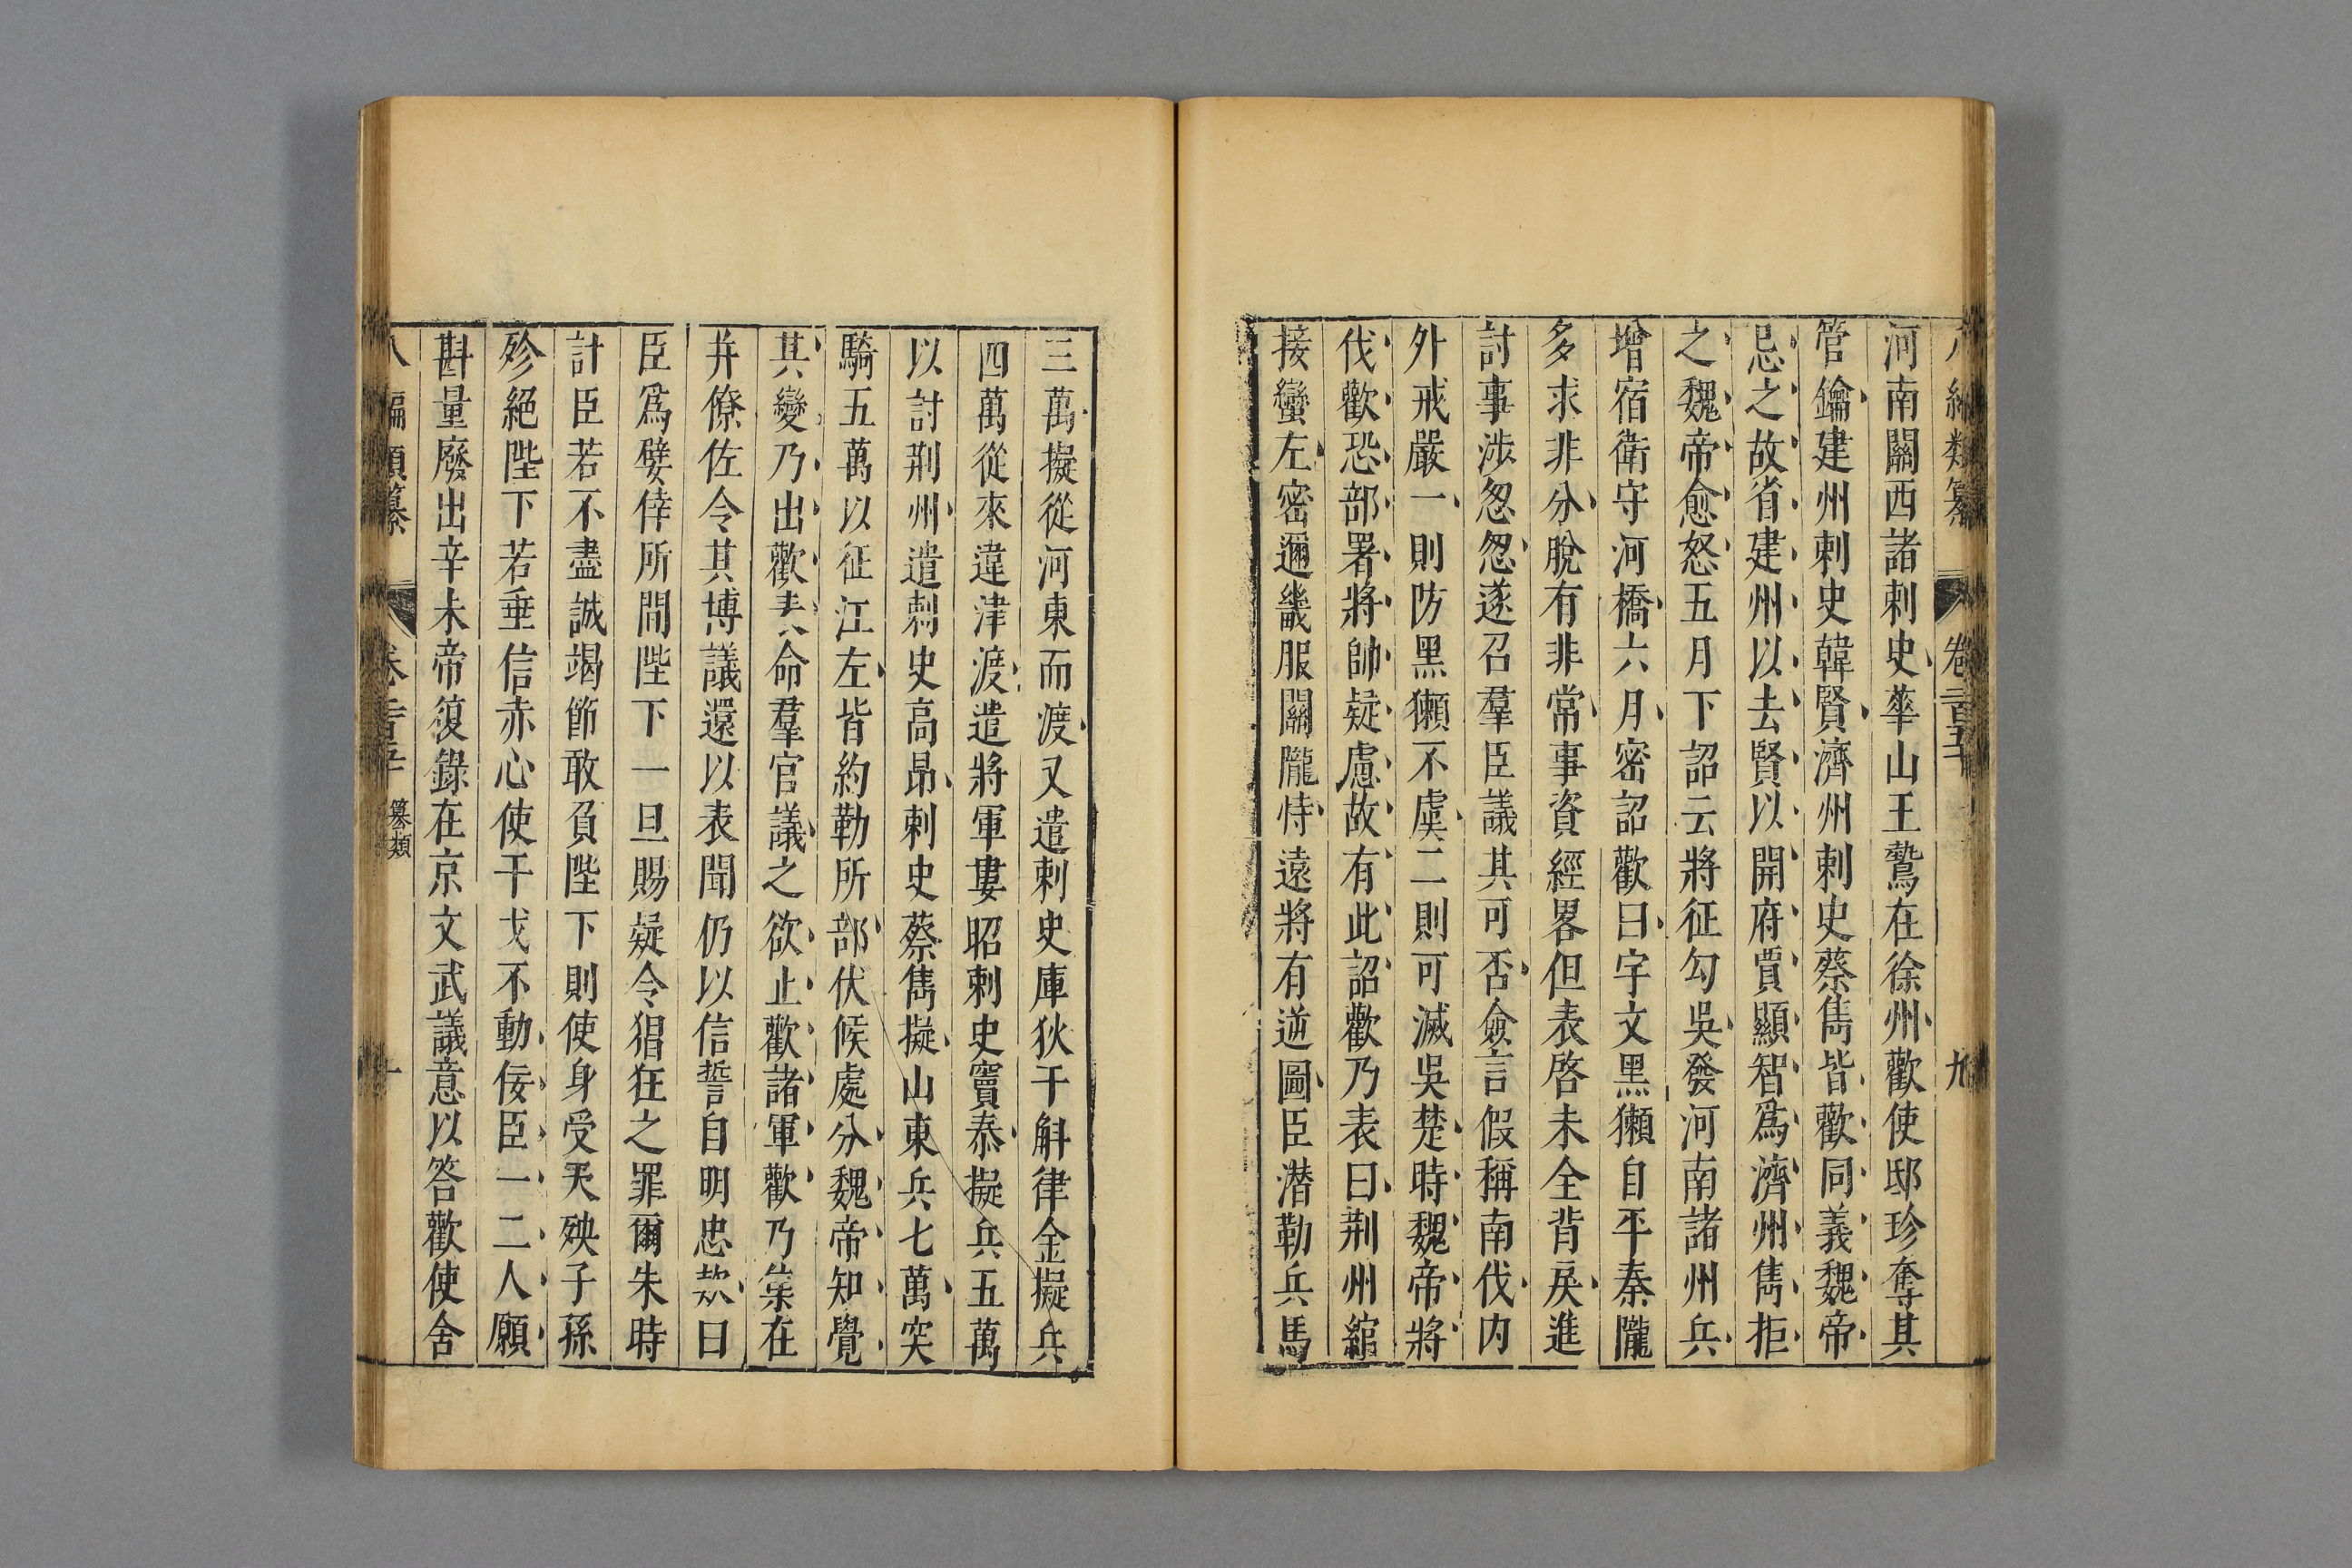 八編類纂 卷二百五十 九
河南關西諸刺史華山王鷙在徐州歡使邸珍奪其
管鑰建州刺史韓賢濟州刺史蔡儁皆歡同義魏帝
忌之故省建州以去賢以開府賈顯智爲濟州儁拒
之魏帝愈怒五月下詔云將征勾吳發河南諸州兵
增宿衛守河橋六月密詔歡曰宇文黑獺自平秦隴
多求非分脫有非常事資經畧但表啓未全背戾進
討事涉忽忽遂召羣臣議其可否僉言假稱南伐内
外戒嚴一則防黑獺不虞二則可滅吳楚時魏帝將
伐歡恐部署將帥疑慮故有此詔歡乃表曰荆州綰
接蠻左密邇畿服關隴恃遠將有逆圖臣潛勒兵馬
三萬擬從河東而渡又遣刺史庫狄干斛律金擬兵
四萬從來違津渡遣將軍婁昭刺史竇泰擬兵五萬
以討荆州遣刺史高昂刺史蔡儁擬山東兵七萬突
騎五萬以征江左皆約勒所部伏候處分魏帝知覺
其變乃出歡表命羣官議之欲止歡諸軍歡乃集在
并僚佐令其博議還以表聞仍以信誓自明忠款曰
臣爲嬖倖所間陛下一旦賜疑令猖狂之罪爾朱時
計臣若不盡誠竭節敢負陛下則使身受天殃子孫
殄絕陛下若垂信赤心使干戈不動佞臣一二人願
斟量廢出辛未帝復錄在京文武議意以答歡使舍
八編類纂 卷二百五十 纂類